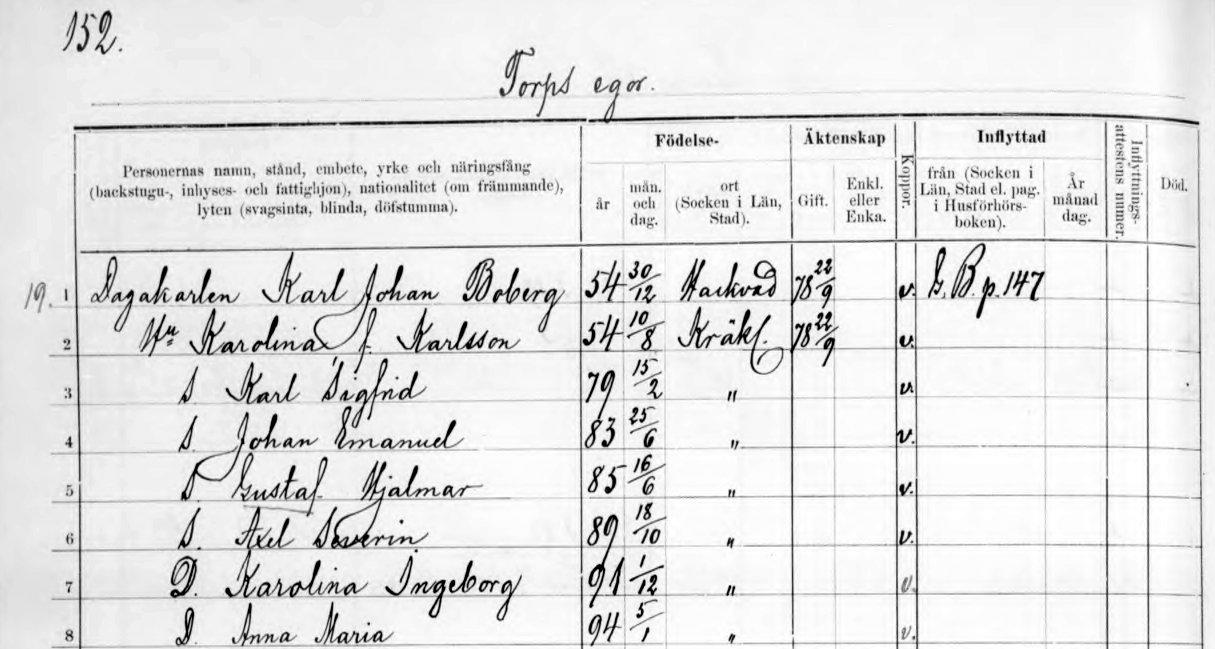 152.
Torps egor.
Personernas namn, stånd, embete, yrke och näringsfång (backstugu-, inhyses- och fattighjon), nationalitet (om främmande), lyten (svagsinta, blinda, döfstumma).
Födelse-
år
mån. och dag.
ort (Socken i Län, Stad).
Äktenskap
Gift.
Enkl. eller Enka.
Koppor.
Inflyttad
från (Socken i Län, Stad el. pag. i Husförhörs-boken).
År månad dag.
Inflyttnings-attestens numer.
Död.
19. 1 Dagakarlen Karl Johan Boberg 54 30/12 Hackvad 78 22/9 v. G. B. p. 147
2 Hu Karolina f. Karlsson 54 10/8 Kräkl. 78 22/9 v.
3 S Karl Sigfrid 79 15/2 " v.
4 S. Johan Emanuel 83 25/6 " v.
5 S. Gustaf Hjalmar 85 16/6 " v.
6 S. Axel Severin 89 18/10 " v.
7 D. Karolina Ingeborg 91 1/12 " v.
8 D. Anna Maria 94 5/1 " v.